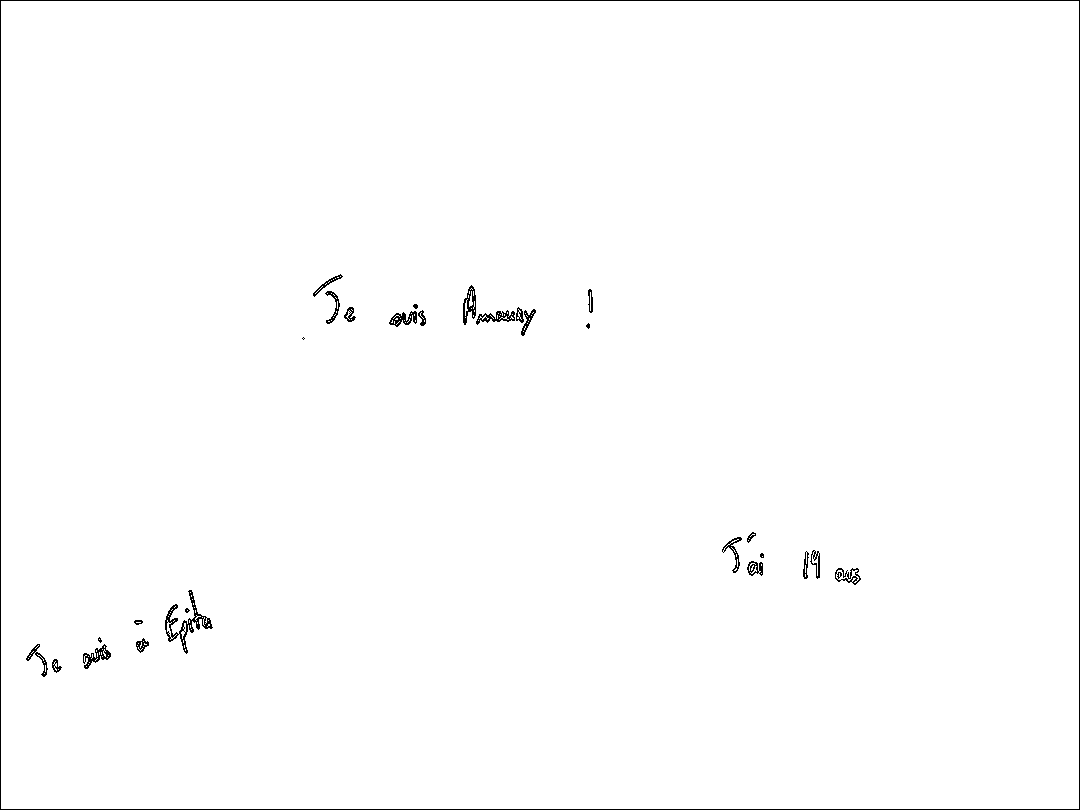 Je suis Amaury !
J'ai 19 ans
Je suis à Epita